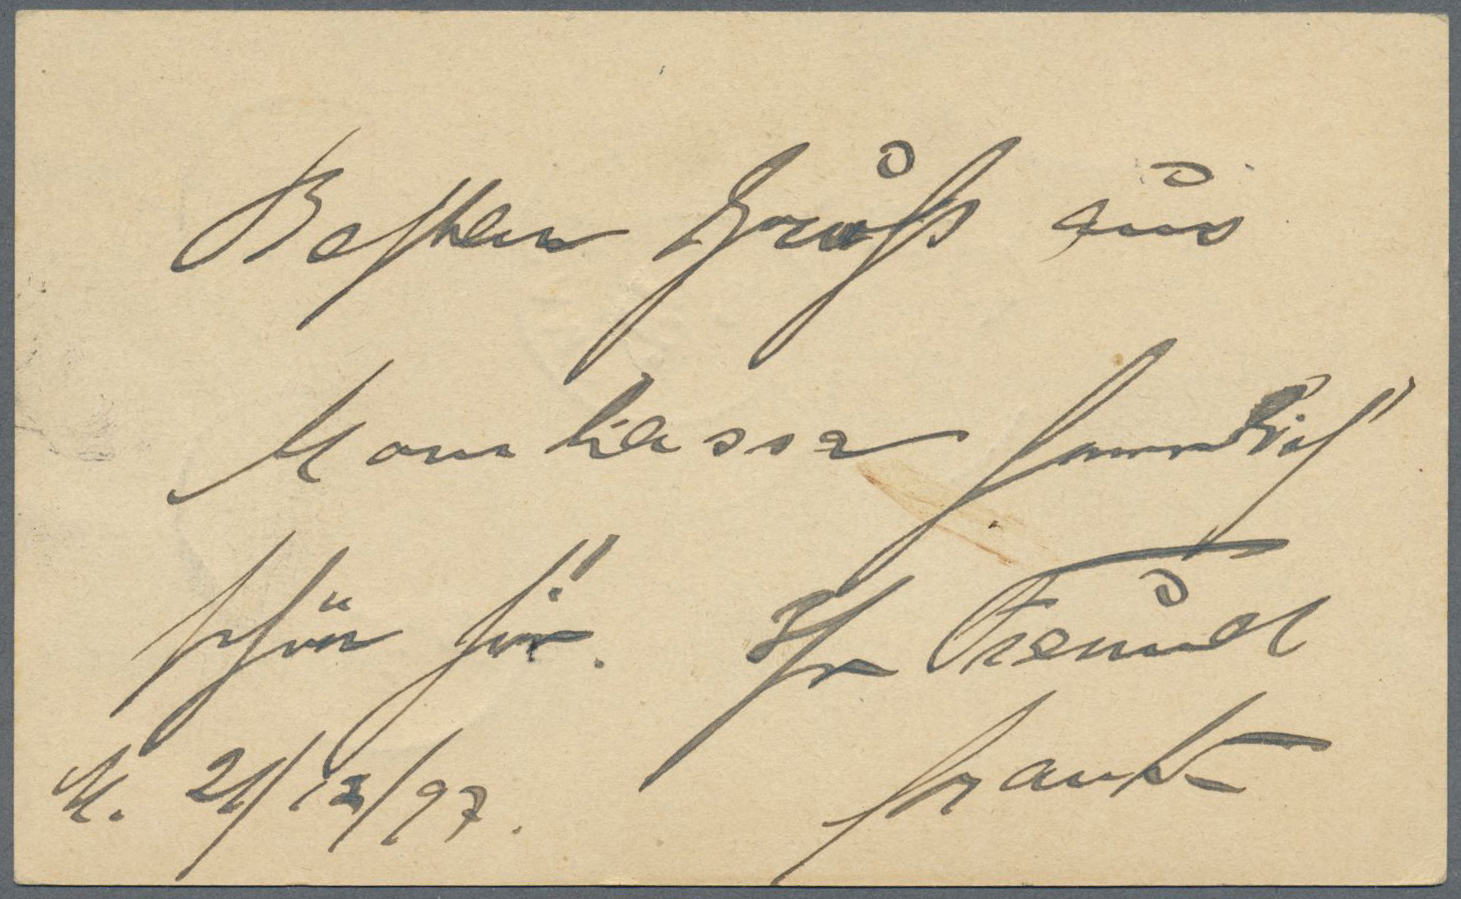 Besten Gruß aus
Mombassa
schön hier. Ihr Freund
Frank
M. 21/12/97.